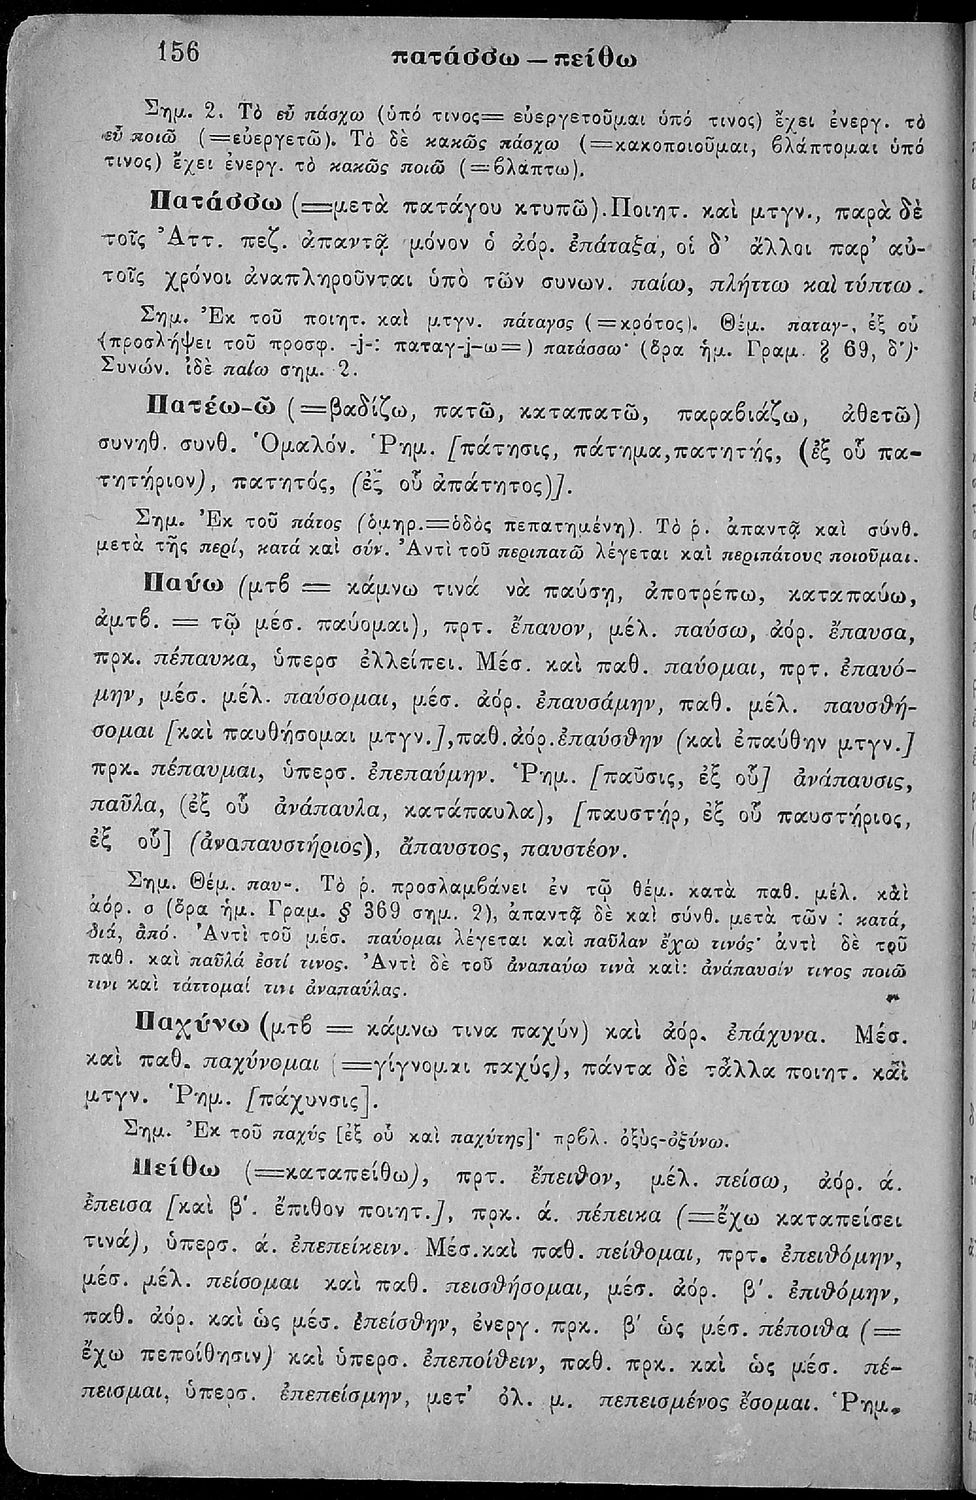 156
πατάσσω — πείθω
Σημ. 2. Τὸ εὖ πάσχω (ὑπό τινος= εὐεργετοῦμαι ὑπό τινος) ἔχει ἐνεργ. τὸ
εὖ ποιῶ (=εὐεργετῶ). Τὸ δὲ κακῶς πάσχω (=κακοποιοῦμαι, βλάπτομαι ὑπό
τινος) ἔχει ἐνεργ. τὸ κακῶς ποιῶ (=βλάπτω).
Πατάσσω (=μετὰ πατάγου κτυπῶ).Ποιητ. καὶ μτγν., παρὰ δὲ
τοῖς Ἀττ. πεζ. ἀπαντᾷ μόνον ὁ ἀόρ. ἐπάταξα, οἱ δ’ ἄλλοι παρ’ αὐ-
τοῖς χρόνοι ἀναπληροῦνται ὑπὸ τῶν συνων. παίω, πλήττω καὶ τύπτω.
Σημ. Ἐκ τοῦ ποιητ. καὶ μτγν. πάταγος (=κρότος). Θέμ. παταγ-, ἐξ οὗ
(προσλήψει τοῦ προσφ. -j-: παταγ-j-ω=) πατάσσω· (ὅρα ἡμ. Γραμ. § 69, δ΄)·
Συνών. ἰδὲ παίω σημ. 2.
Πατέω-ῶ (=βαδίζω, πατῶ, καταπατῶ, παραβιάζω, ἀθετῶ)
συνηθ. συνθ. Ὁμαλόν. Ῥημ. [πάτησις, πάτημα,πατητής, (ἐξ οὗ πα-
τητήριον), πατητός, (ἐξ οὗ ἀπάτητος)].
Σημ. Ἐκ τοῦ πάτος (ὁμηρ.=ὁδὸς πεπατημένη). Τὸ ῥ. ἀπαντᾷ καὶ σύνθ.
μετὰ τῆς περί, κατά καὶ σύν. Ἀντὶ τοῦ περιπατῶ λέγεται καὶ περιπάτους ποιοῦμαι.
Παύω (μτβ = κάμνω τινά νὰ παύσῃ, ἀποτρέπω, καταπαύω,
ἀμτβ. = τῷ μέσ. παύομαι), πρτ. ἔπαυον, μέλ. παύσω, ἀόρ. ἔπαυσα,
πρκ. πέπαυκα, ὑπερσ ἐλλείπει. Μέσ. καὶ παθ. παύομαι, πρτ. ἐπαυό-
μην, μέσ. μέλ. παύσομαι, μέσ. ἀόρ. ἐπαυσάμην, παθ. μέλ. παυσθή-
σομαι [καὶ παυθήσομαι μτγν.],παθ.ἀόρ.ἐπαύσθην (καὶ ἐπαύθην μτγν.]
πρκ. πέπαυμαι, ὑπερσ. ἐπεπαύμην. Ῥημ. [παῦσις, ἐξ οὗ] ἀνάπαυσις,
παῦλα, (ἐξ οὗ ἀνάπαυλα, κατάπαυλα), [παυστήρ, ἐξ οὗ παυστήριος,
ἐξ οὗ] (ἀναπαυστήριος), ἄπαυστος, παυστέον.
Σημ. Θέμ. παυ-. Τὸ ῥ. προσλαμβάνει ἐν τῷ θέμ. κατὰ παθ. μέλ. καὶ
ἀόρ. σ (ὅρα ἡμ. Γραμ. § 369 σημ. 2), ἀπαντᾷ δὲ καὶ σύνθ. μετὰ τῶν : κατά,
διά, ἀπό. Ἀντὶ τοῦ μέσ. παύομαι λέγεται καὶ παῦλαν ἔχω τινός· ἀντὶ δὲ τοῦ
παθ. καὶ παῦλά ἐστί τινος. Ἀντὶ δὲ τοῦ ἀναπαύω τινὰ καὶ: ἀνάπαυσίν τινος ποιῶ
τινι καὶ τάττομαί τινι ἀναπαύλας.
Παχύνω (μτβ = κάμνω τινα παχύν) καὶ ἀόρ. ἐπάχυνα. Μέσ.
καὶ παθ. παχύνομαι (=γίγνομαι παχύς), πάντα δὲ τἆλλα ποιητ. καὶ
μτγν. Ῥημ. [πάχυνσις].
Σημ. Ἐκ τοῦ παχύς [ἐξ οὗ καὶ παχύτης]· πρβλ. ὀξύς-ὀξύνω.
Πείθω (=καταπείθω), πρτ. ἔπειθον, μέλ. πείσω, ἀόρ. ά.
ἔπεισα [καὶ β΄. ἔπιθον ποιητ.], πρκ. ά. πέπεικα (=ἔχω καταπείσει
τινά), ὑπερσ. ά. ἐπεπείκειν. Μέσ.καὶ παθ. πείθομαι, πρτ. ἐπειθόμην,
μέσ. μέλ. πείσομαι καὶ παθ. πεισθήσομαι, μέσ. ἀόρ. β΄. ἐπιθόμην,
παθ. ἀόρ. καὶ ὡς μέσ. ἐπείσθην, ἐνεργ. πρκ. β΄ ὡς μέσ. πέποιθα (=
ἔχω πεποίθησιν) καὶ ὑπερσ. ἐπεποίθειν, παθ. πρκ. καὶ ὡς μέσ. πέ-
πεισμαι, ὑπερσ. ἐπεπείσμην, μετ’ ὀλ. μ. πεπεισμένος ἔσομαι. Ῥημ.